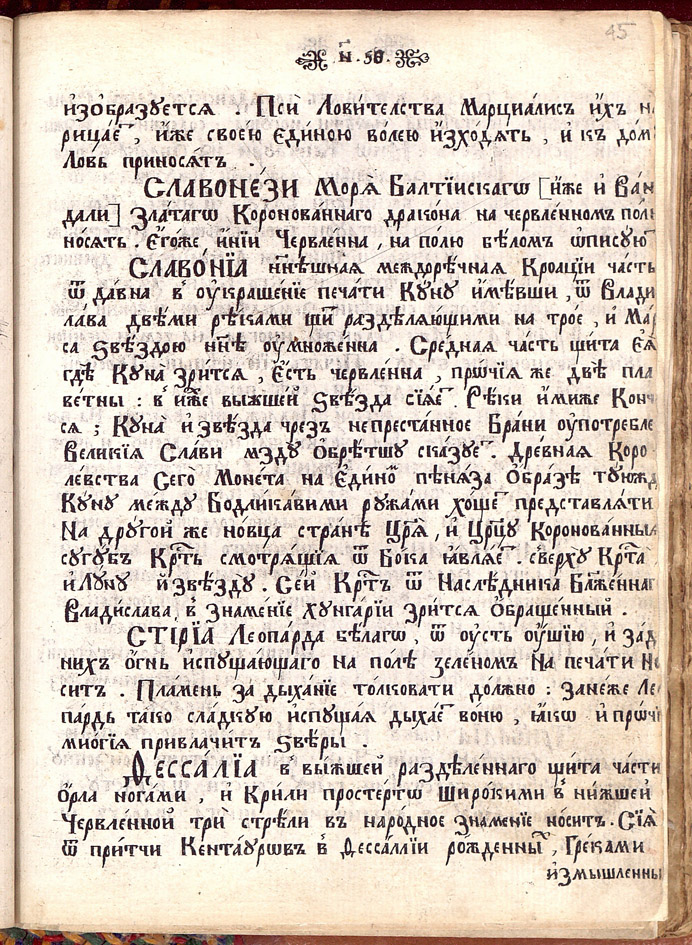 45
н҃. 50.
и҆зѡбразꙋетсѧ . Пси́ Лови́телства Марциали́съ и҆́хъ н
рица́еⷮ , и҆́же своею̀ є҆ди́ною во́лею и҆зхо́дѧтъ , и҆ къ до́м
Ловь прино́сѧтъ .
СЛАВОНЕ́ЗИ Морѧ̀ Балті́искагѡ [и҆́же и҆ Ва́н
дали] Зла́тагѡ Короно́ваннаго драко́на на червле́нномъ пол
но́сѧтъ . Е҆го́же, и҆ні́и Червле́нна , на по́лю бѣ́ломъ ѡ҆писꙋю́ⷮ
СЛАВО́НІА нн҃ѣшнаѧ междорѣ́чнаѧ Кроаці́и ча́сть
ѿ да́вна в̾ ᲂу҆краше́нїе печа́ти Кꙋ́нꙋ и҆мѣ́вши , ѿ Влади
ла́ва двѣ́ми рѣ́ками щи раздѣлѧ́ющими на тро́е , и҆ Ма́р
са Ѕвѣздо́ю нн҃ѣ ᲂу҆мно́женна . Сре́днаѧ ча́сть щита̀ Еѧ̀
гдѣ̀ Кꙋна̀ зри́тсѧ , Е҆́сть червле́нна , прѡ́чїѧ же двѣ̀ пла
ве́тны : в̾ и҆́хже вы́жшей Ѕвѣзда̀ сїѧ́еⷮ . Рѣ́ки и҆ми́же Конч
сѧ ; Кꙋна̀ и҆ звѣзда̀ чрезъ непреста́нное Бра́ни ᲂу҆потребле
Вели́кїѧ Сла́ви мздꙋ̀ Ѡ҆брѣ́тшꙋ ска́зꙋеⷮ . Дре́внаѧ Коро
ле́вства Сего̀ Моне́та на Е҆ди́ноⷨ пѣ́нѧза Ѡ҆́бразѣ тꙋ́южд
Кꙋ́нꙋ ме́ждꙋ Бодли́кавими рꙋ́жами хо́щеⷮ представлѧ́ти
На дрꙋго́й же но́вца стра́нѣ Цр҃ѧ̀ , и҆ Цр҃цꙋ Короно́ванныѧ
сꙋгꙋ́бъ Крⷭ҇тъ смотрѧ́щїѧ ѿ Бо́ка ꙗ҆влѧ́еⷮ . све́рхꙋ Крⷭ҇та
и҆ Лꙋнꙋ̀ и҆ звѣздꙋ̀ . Се́й Крⷭ҇тъ ѿ Наслѣ́дника Бл҃же́ннаг
Влади́слава, в̾ зна́менїе Хꙋнга́рїи зри́тсѧ Ѡ҆браще́нный .
СТІ́РІА Леопа́рда бѣ́лагѡ , ѿ ᲂу҆́стъ ᲂу҆ші́ю , и҆ за́д
нихъ ѻ҆́гнь и҆спꙋща́ющаго на по́лѣ зеле́номъ На печа́ти Но
ситъ . Пла́мень за дыха́нїе толкова́ти до́лжно : Зане́же Ле
па́рдь та́ко сла́дкꙋю и҆спꙋща́ѧ дыха́еⷮ воню̀ , ꙗ҆́кѡ и҆ прѡ́чї
мно́гїѧ привлачи́тъ Ѕвѣ́ры .
ѲЕССА́ЛІА в̾ вы́жшей раздѣле́ннаго щита̀ части
ѻ҆рла̀ нога́ми , и҆ Кри́ли просте́ртѡ Широ́кими в̾ ни́жшей
Червле́нной трѝ стрѣлѝ въ наро́дное зна́менїе но́ситъ . Сїѧ̀
ѿ при́тчи Кента́ᲂурѡвъ в̾ Ѳесса́лїи рожде́нныⷯ , Гре́ками
и҆змы́шленны